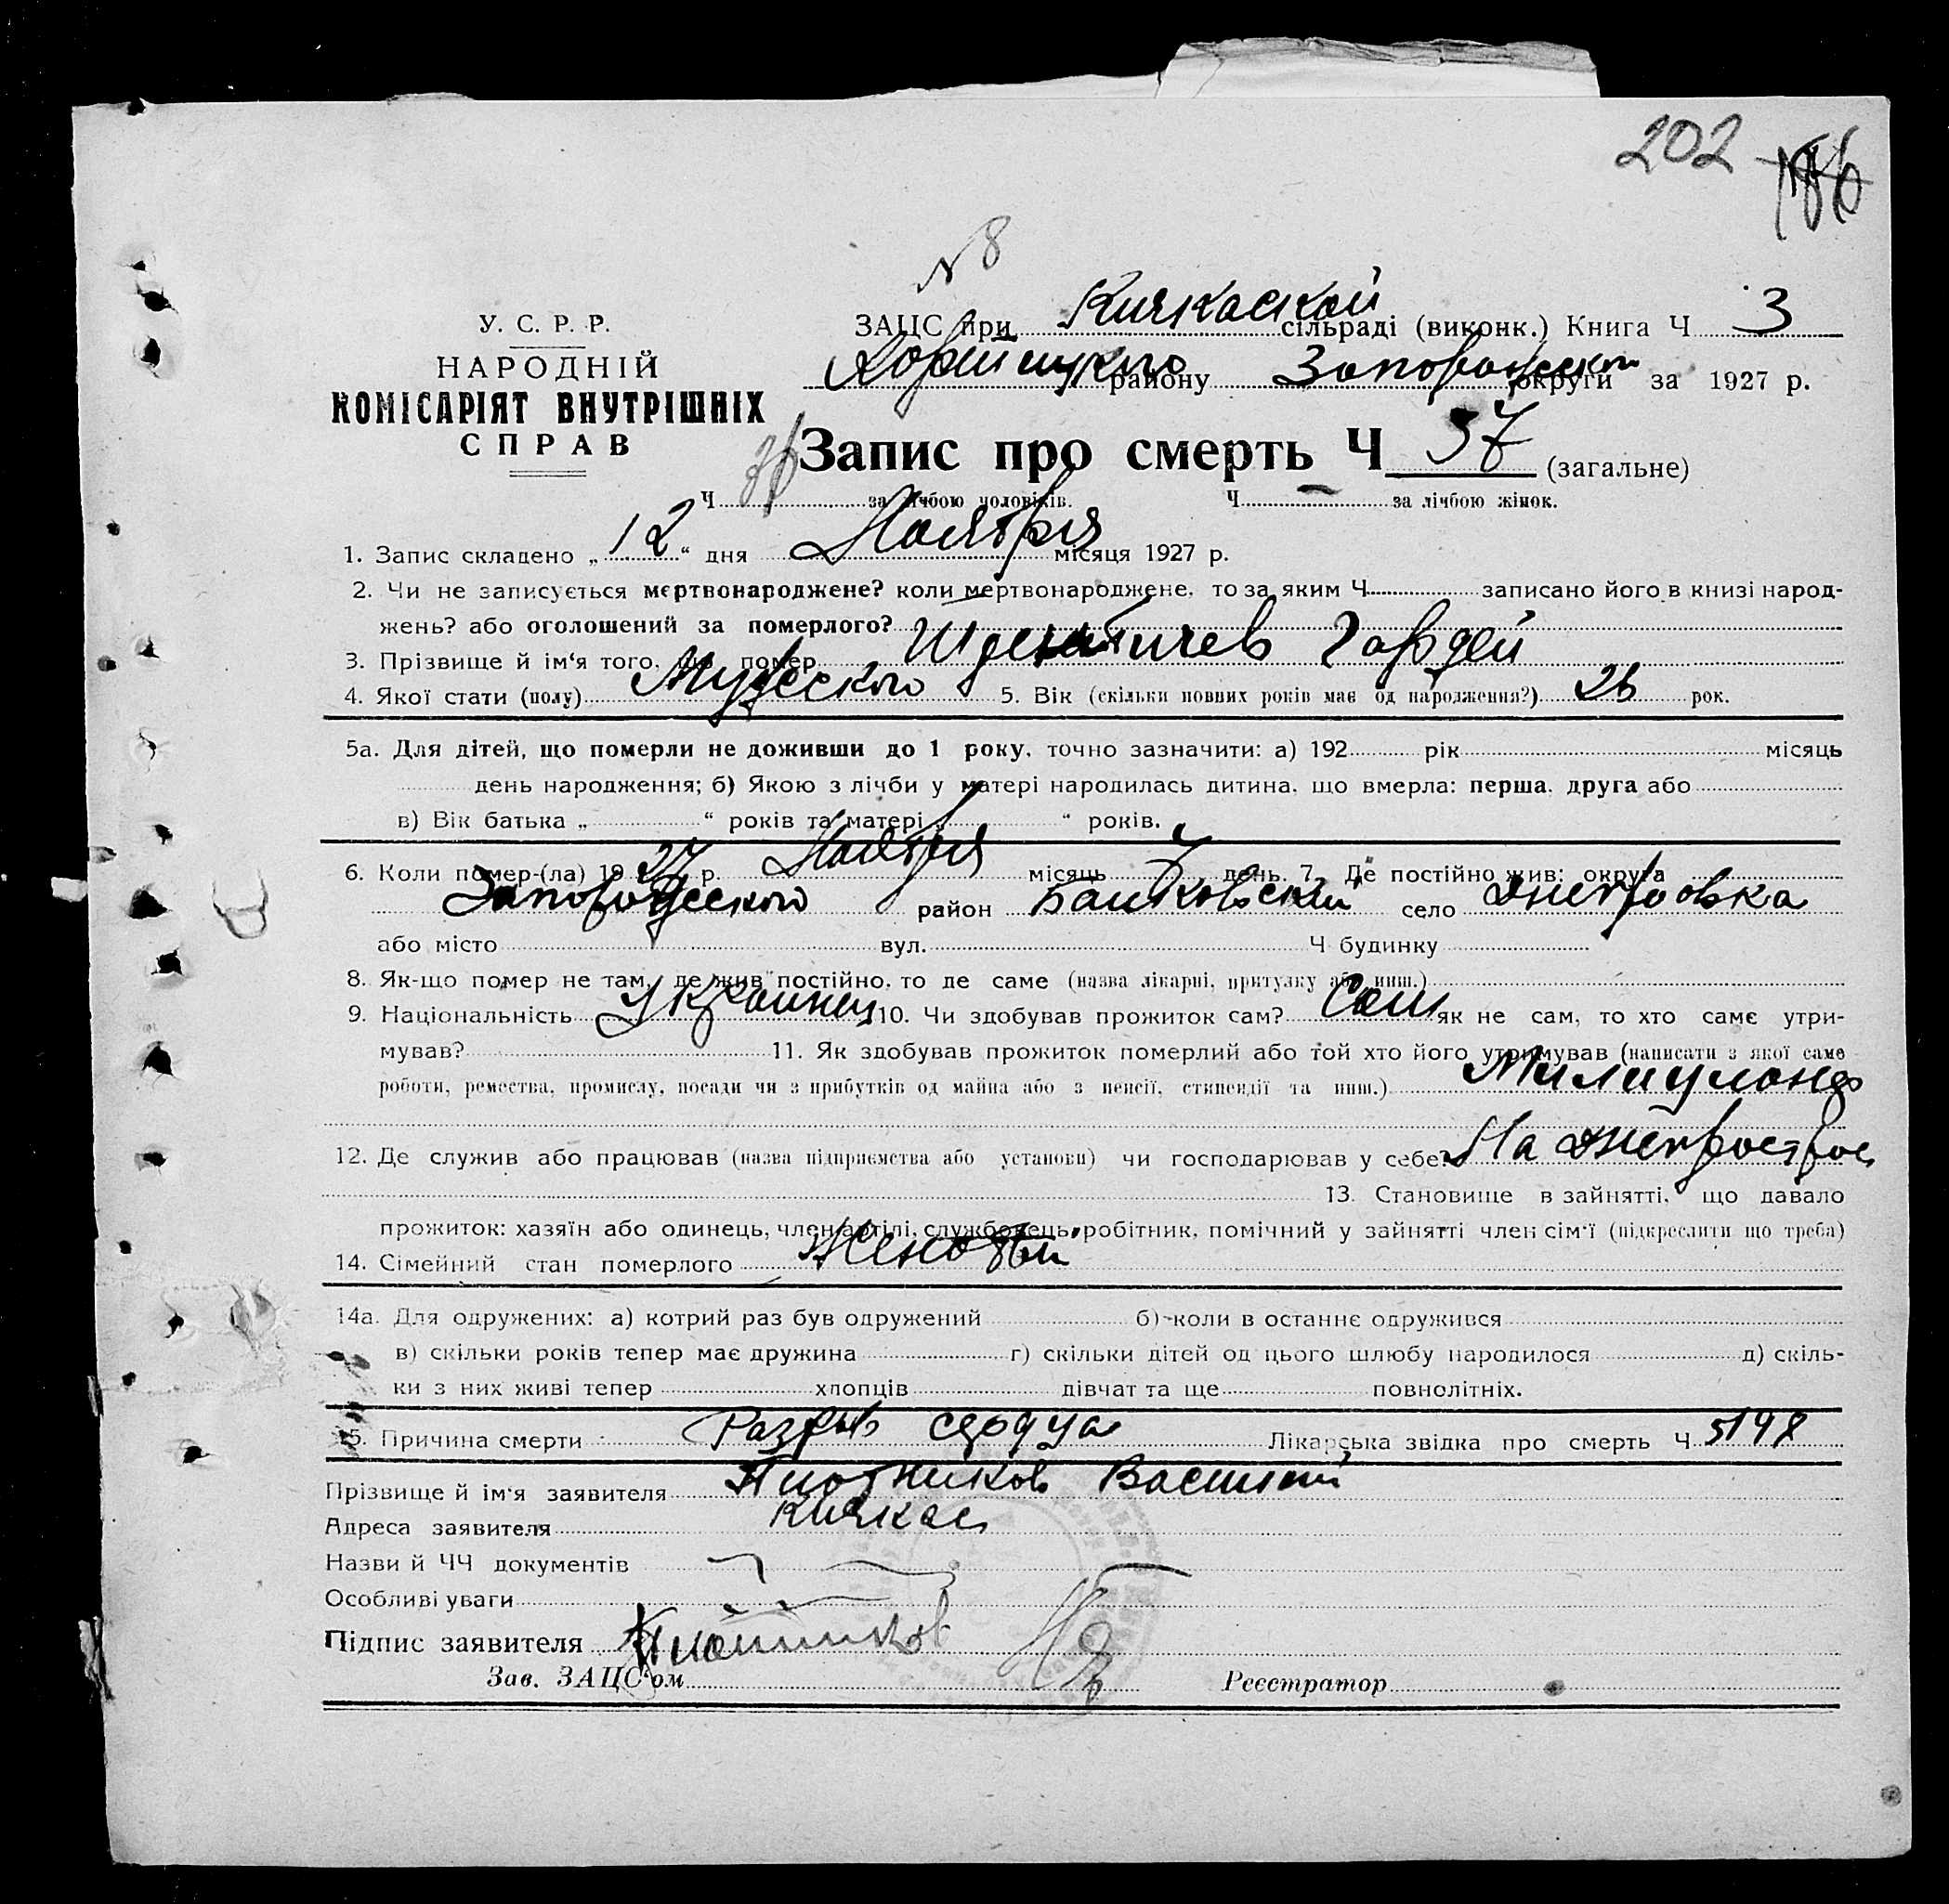 202
N 8
У. С. Р. Р.
НАРОДНІЙ
КОМІСАРІЯТ ВНУТРІШНІХ
СПРАВ
ЗАЦС при Кичкаской сільраді (виконк.) Книга Ч 3
Хортицкого району Запорожской округи за 1927 р.
Запис про смерть Ч 37 (загальне)
Ч за лічбою чоловіків. Ч за лічбою жінок.
1. Запис складено „12“ дня Ноября місяця 1927 р.
2. Чи не записується мєртвонароджене? коли мертвонароджене, то за яким Ч записано його в книзі народ-
жень? або оголошений за померлого?
3. Прізвище й ім‘я того, що помер Гордей
4. Якої стати (полу) Мужеского 5. Вік (скільки повних років має од народження?) рок.
5а. Для дітей, що померли не доживши до 1 року, точно зазначити: а) 192 рік місяць
день народження; б) Якою з лічби у матері народилась дитина, що вмерла: перша, друга або
в) Вік батька „ “ років та матері „ “ років.
6. Коли помер-(ла) 1927 р. Ноября місяць 7 день. 7. Де постійно жив: округа
Запорожского район село Днепровка
або місто вул. Ч будинку
8. Як-що помер не там, де жив постійно, то де саме (назва лікарні, притулку або инш.)
9. Національність Украинец 10. Чи здобував прожиток сам? Сам як не сам, то хто самє утри-
мував? 11. Як здобував прожиток померлий або той хто його утримував (написати з якої саме
роботи, ремества, промислу, посади чи з прибутків од майна або з пенсії, стипендії та инш.) Милиционер
12. Де служив або працював (назва підприємства або установи) чи господарював у себе? На Днепрострое
13. Становище в зайнятті, що давало
прожиток: хазяїн або одинець, член артілі, службовець, робітник, помічний у зайнятті член сім‘ї (підкреслити що треба)
14. Сімейний стан померлого Женатый
14а. Для одружених: а) котрий раз був одружений б) коли в останнє одружився
в) скільки років тепер має дружина г) скільки дітей од цього шлюбу народилося д) скіль-
ки з них живі тепер хлопців дівчат та ще повнолітніх.
15. Причина смерти Разрыв сердца Лікарська звідка про смерть Ч 5198
Прізвище й ім‘я заявителя Плотников Василий
Адреса заявителя Кичкас
Назви й ЧЧ документів
Особливі уваги
Підпис заявителя Плотников
Зав. ЗАЦС‘ом Реєстратор